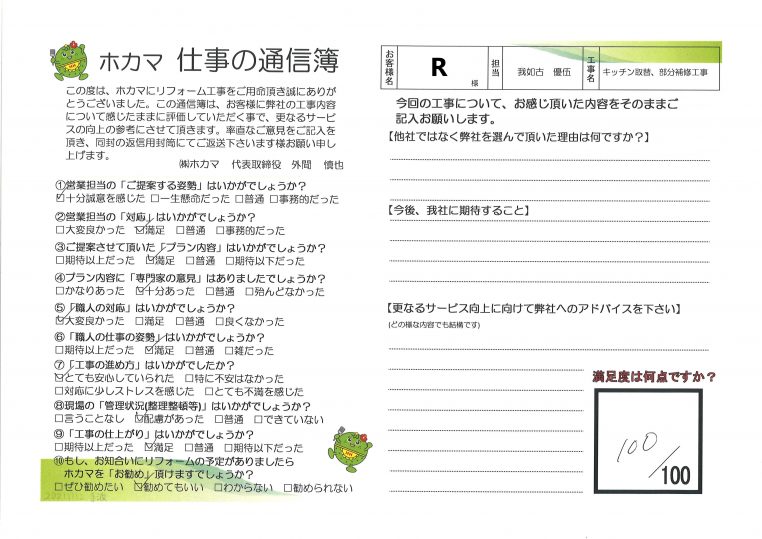 ホカマ 仕事の通信簿
この度は、ホカマにリフォーム工事をご用命頂き誠にありが
とうございました。この通信簿は、お客様に弊社の工事内容
について感じたままに評価していただく事で、更なるサービ
スの向上の参考にさせて頂きます。率直なご意見をご記入を
頂き、同封の返信用封筒にてご返送下さいます様お願い申し
上げます。
㈱ホカマ 代表取締役 外間 慎也
①営業担当の「ご提案する姿勢」はいかがでしょうか？
☑十分誠意を感じた □一生懸命だった □普通 □事務的だった
②営業担当の「対応」はいかがでしょうか？
□大変良かった ☑満足 □普通 □事務的だった
③ご提案させて頂いた「プラン内容」はいかがでしょうか？
□期待以上だった ☑満足 □普通 □期待以下だった
④プラン内容に「専門家の意見」はありましたでしょうか？
□かなりあった ☑十分あった □普通 □殆んどなかった
⑤「職人の対応」はいかがでしょうか？
☑大変良かった □満足 □普通 □良くなかった
⑥「職人の仕事の姿勢」はいかがでしょうか？
□期待以上だった ☑満足 □普通 □雑だった
⑦「工事の進め方」はいかがでしたか？
☑とても安心していられた □特に不安はなかった
□対応に少しストレスを感じた □とても不満を感じた
⑧現場の「管理状況(整理整頓等)」はいかがでしょうか？
□言うことなし ☑配慮があった □普通 □できていない
⑨「工事の仕上がり」はいかがでしょうか？
□期待以上だった ☑満足 □普通 □期待以下だった
⑩もし、お知合いにリフォームの予定がありましたら
ホカマを「お勧め」頂けますでしょうか？
□ぜひ勧めたい ☑勧めてもいい □わからない □勧められない
お客様名 R 様 担当 我如古 優伍 工事名 キッチン取替、部分補修工事
今回の工事について、お感じ頂いた内容をそのままご
記入お願いします。
【他社ではなく弊社を選んで頂いた理由は何ですか？】
【今後、我社に期待すること】
【更なるサービス向上に向けて弊社へのアドバイスを下さい】
(どの様な内容でも結構です)
満足度は何点ですか？
100/100